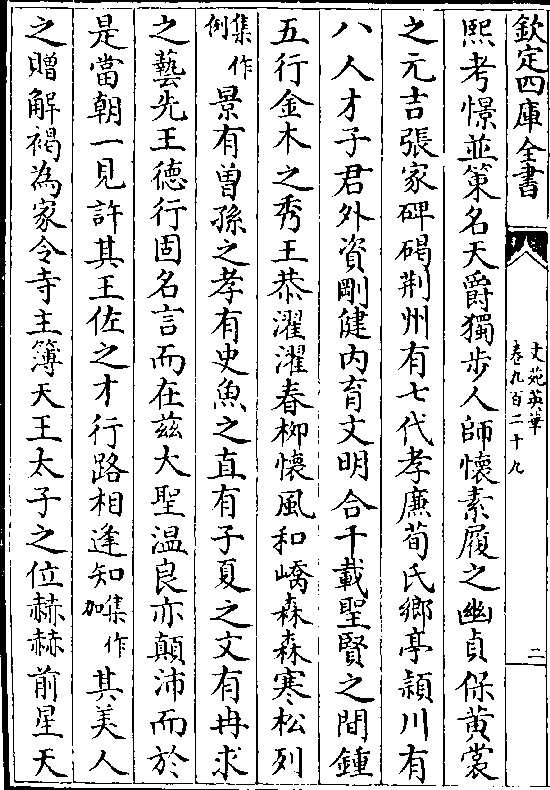 欽定四庫全書
文苑英華
卷九百二十九
二
熙考憬並策名天爵獨步人師懷素履之幽貞保黃裳
之元吉張家碑碣荆州有七代孝廉荀氏鄉亭潁川有
八人才子君外資剛健内育文明合千載聖賢之間鍾
五行金木之秀王恭濯濯春栁懷風和嶠森森寒松列
集作例景有曽孫之孝有史魚之直有子夏之文有冉求
之藝先王德行固名言而在兹大聖温良亦顛沛而於
是當朝一見許其王佐之才行路相逢知集作加其美人
之贈解褐為家令寺主簿天王太子之位赫赫前星天